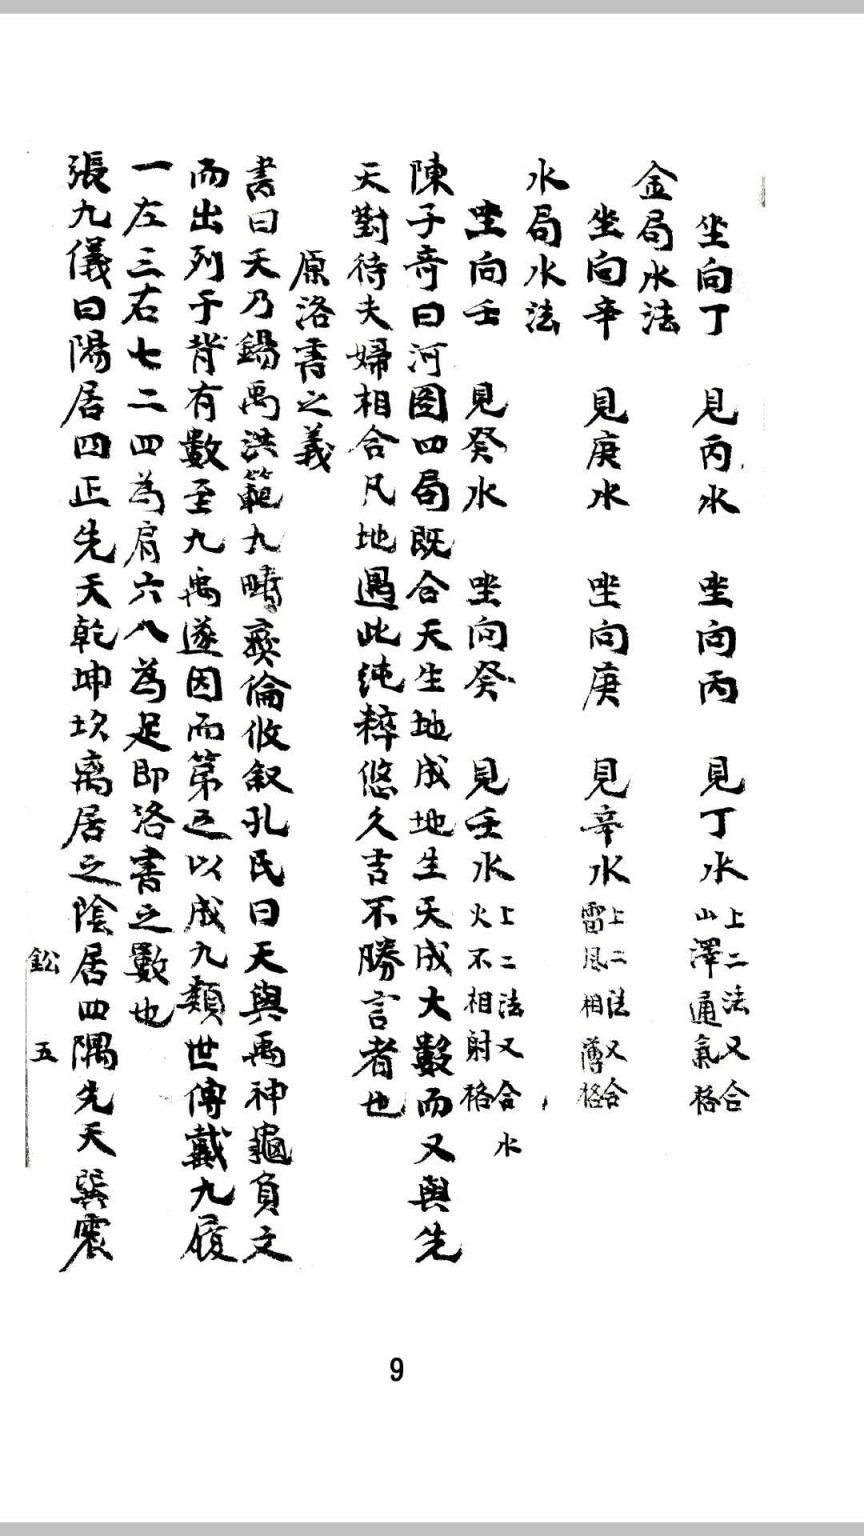 坐向丁　見丙水　坐向丙　見丁水　上二法又合山澤通氣格
金局水法
坐向辛　見庚水　坐向庚　見辛水　上二法又合雷風相薄格
水局水法
坐向壬　見癸水　坐向癸　見壬水　上二法又合水火不相射格
陳子奇曰河图四局既合天生地成地生天成大數而又與先
天對待夫婦相合凡地遇此純粹悠久吉不勝言者也
原洛書之義
書曰天乃錫禹洪範九疇彝倫攸叙孔氏曰天與禹神龜負文
而出列于背有數至九禹遂因而第之以成九類世傳戴九履
一左三右七二四為肩六八為足即洛書之數也
張九儀曰陽居四正先天乾坤坎离居之陰居四隅先天巽震
五
9